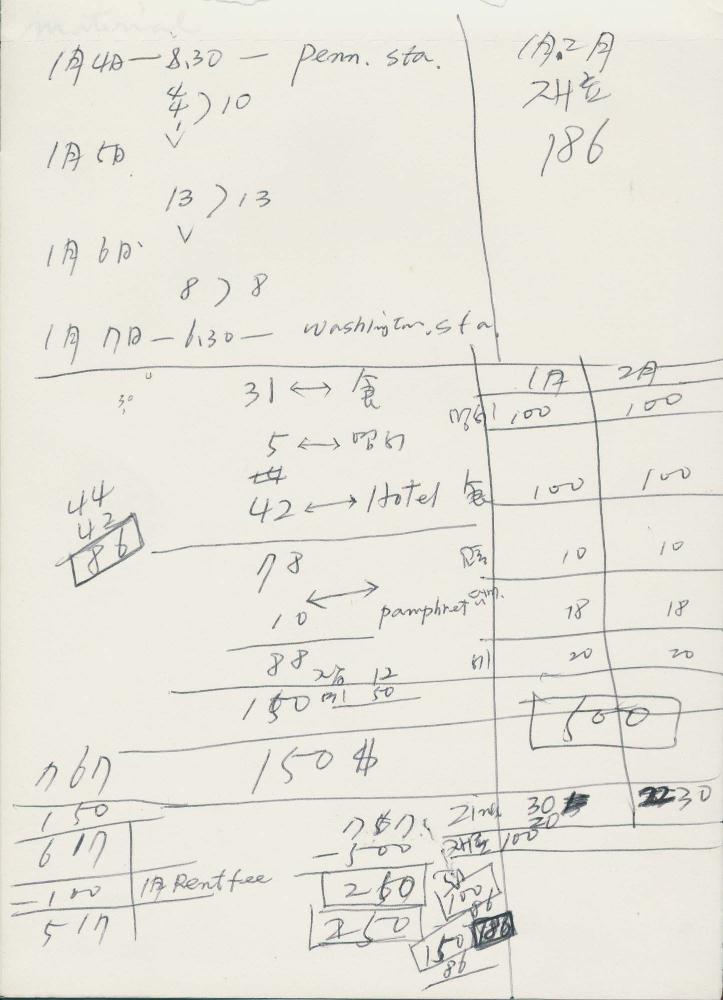 1月4日 — 8.30 — penn. sta.
4
4 > 10
1月5日
13 > 13
1月6日
8 > 8
1月7日 — 6.30 — Washington. sta.
1月.2月
재료
186
31 ↔ 食
5 ↔
42 ↔ Hotel
78
10 ↔ pamphret
88
12
50
150
150 $
44
42
86
1月 2月
100 100
食 100 100
10 10
18 18
비 20 20
500
Zinc 30 30
20
재료 100
767
150
617
-100 1月 Rent fee
517
-500
250
250
50
100
86
150 186
86